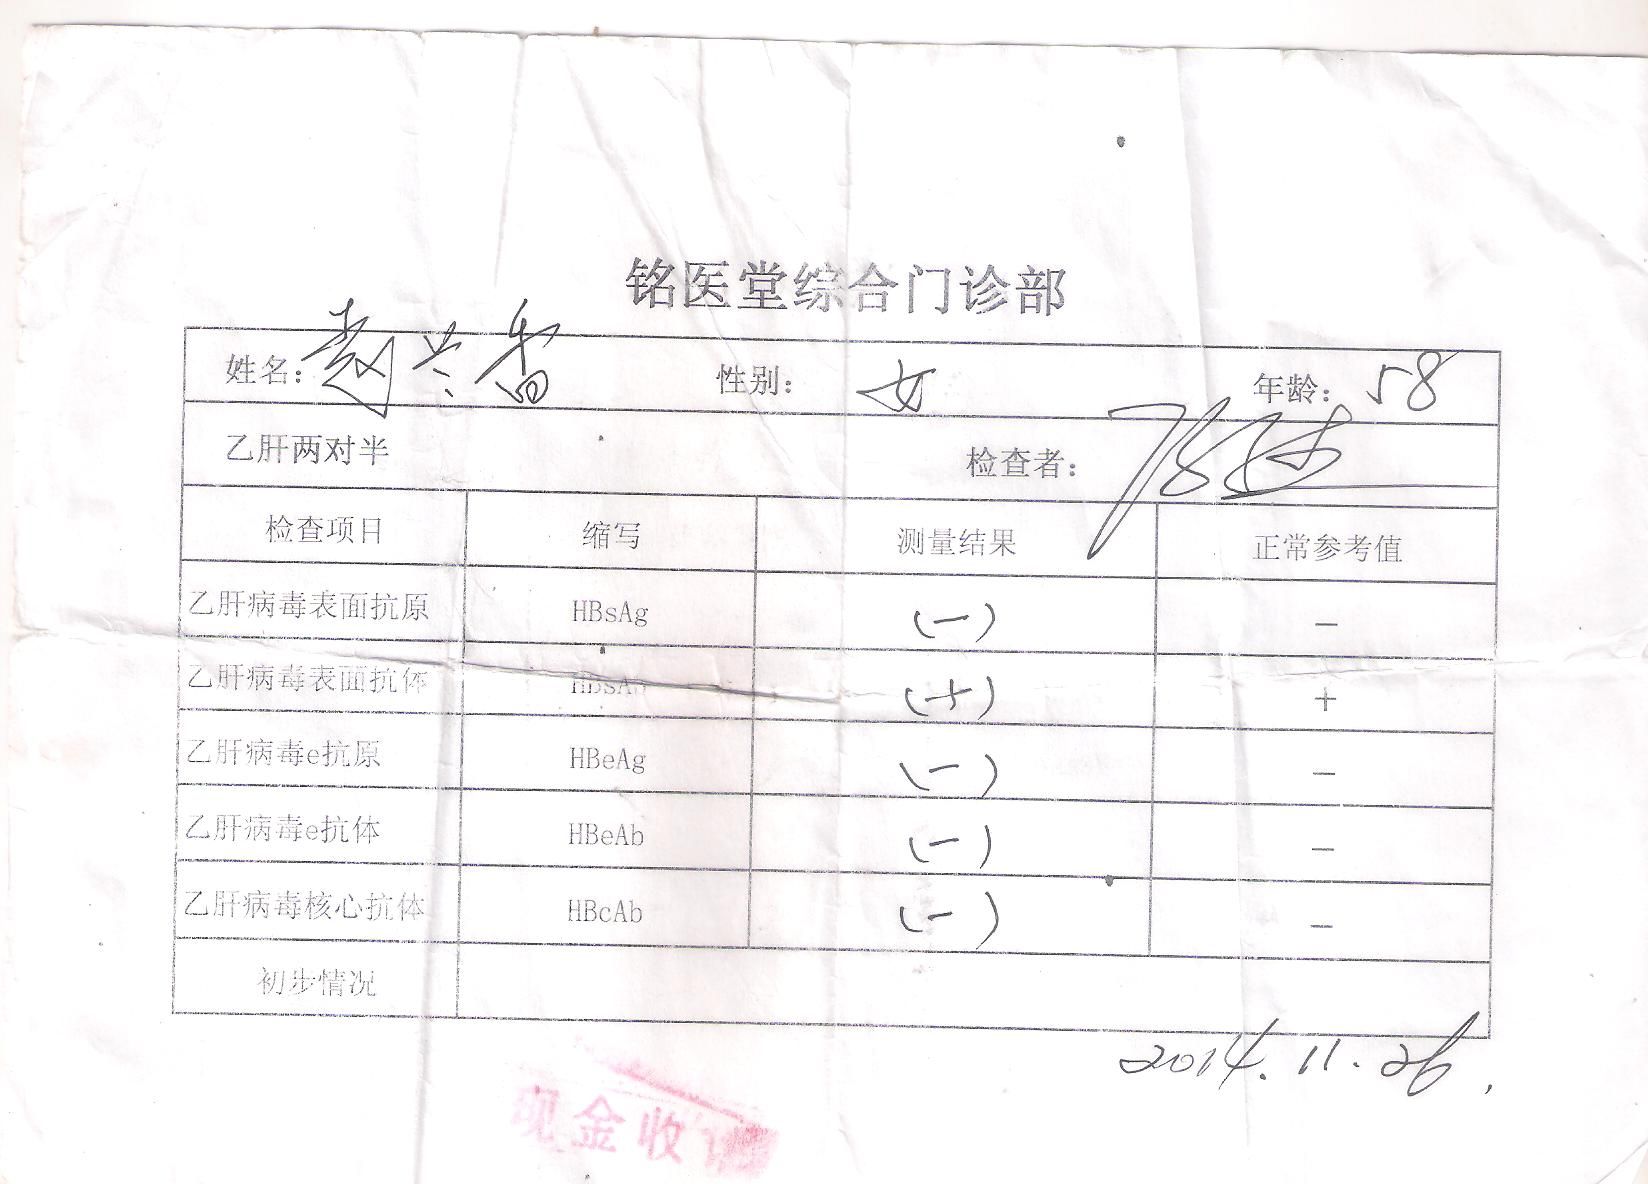 铭医堂综合门诊部
姓名: 赵兰香 性别: 女 年龄: 58
乙肝两对半 检查者:
检查项目 缩写 测量结果 正常参考值
乙肝病毒表面抗原 HBsAg (-) -
乙肝病毒表面抗体 HBsAb (+) +
乙肝病毒e抗原 HBeAg (-) -
乙肝病毒e抗体 HBeAb (-) -
乙肝病毒核心抗体 HBcAb (-) -
初步情况
2014.11.26.
现金收讫